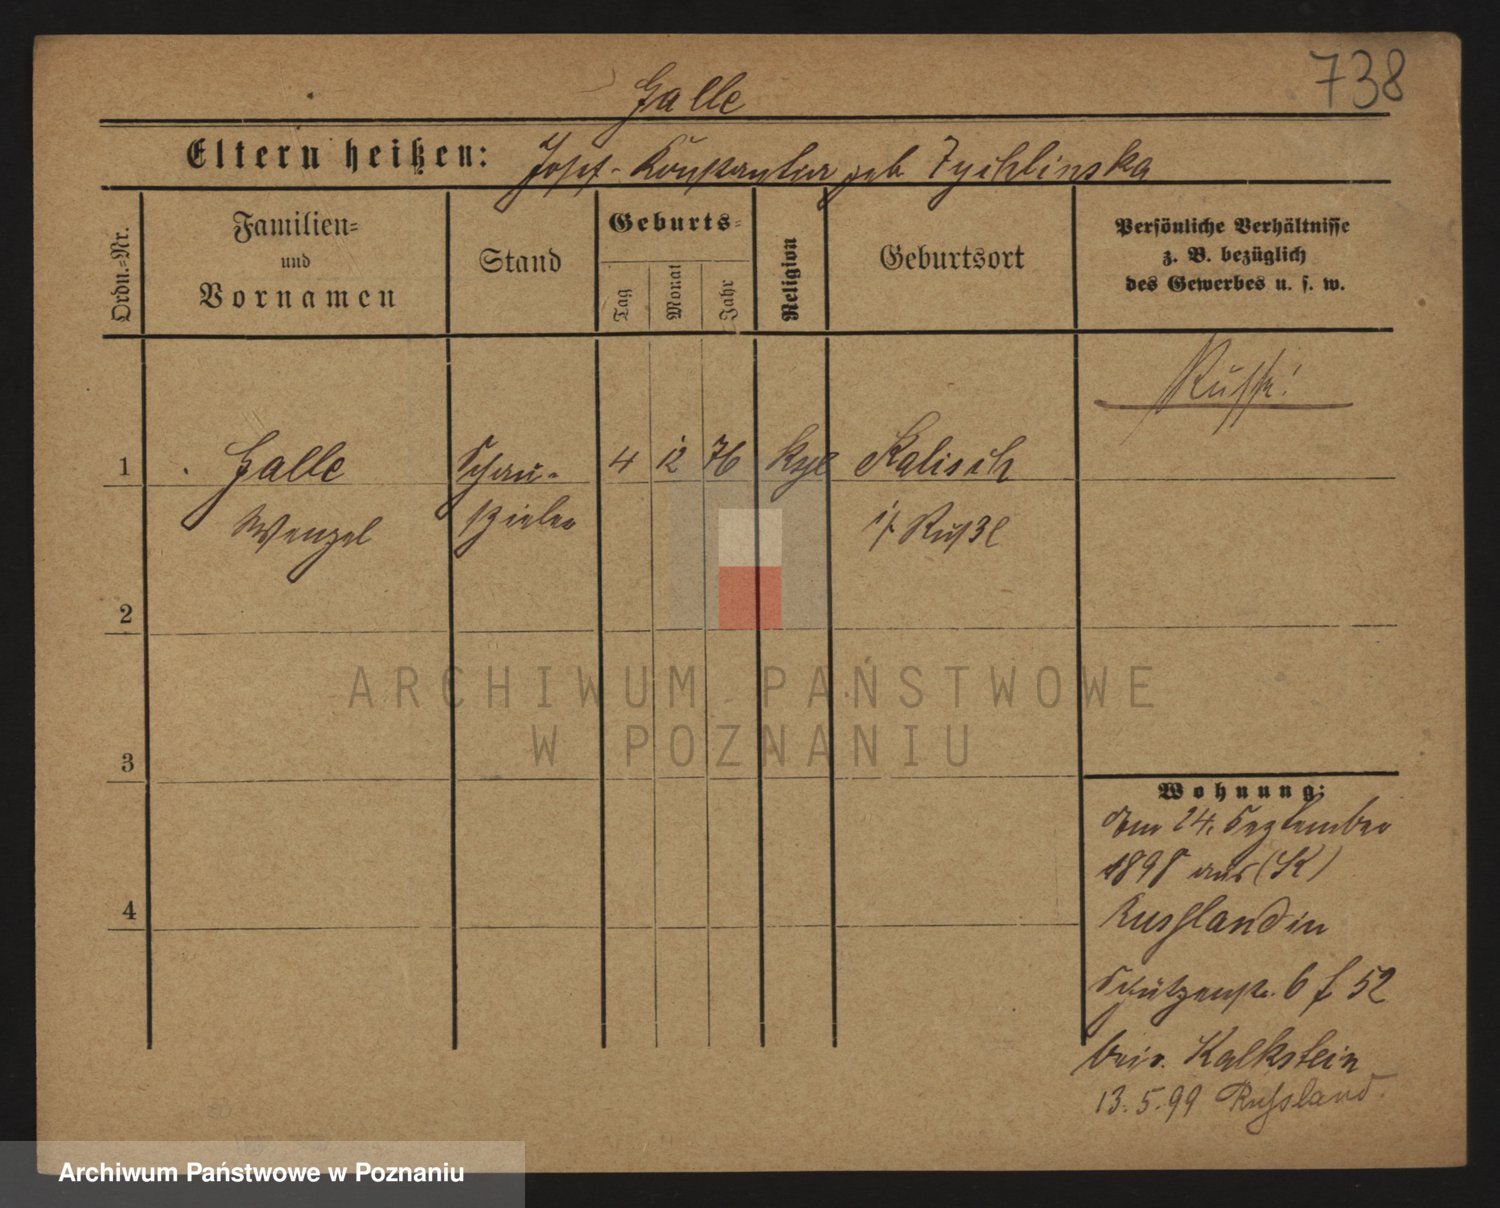 738
Galle
Eltern heißen: Josef - Konstantia geb Zychlinska
Ordn.=Nr.
Familien=
und
Vornamen
Stand
Geburts=
Tag
Monat
Jahr
Religion
Geburtsort
Persönliche Verhältnisse
z. B. bezüglich
des Gewerbes u. s. w.
Russe!
1 Galle Schau= 4 12 76 Kalisch
Wenzel spieler i/ Rußl
2
3
4
Wohnung:
Am 24. September
1898 aus (K)
Russland in
Schützenstr. 6 f 52
bei v. Kalkstein
13.5.99 Russland.
ARCHIWUM PAŃSTWOWE
W POZNANIU
Archiwum Państwowe w Poznaniu